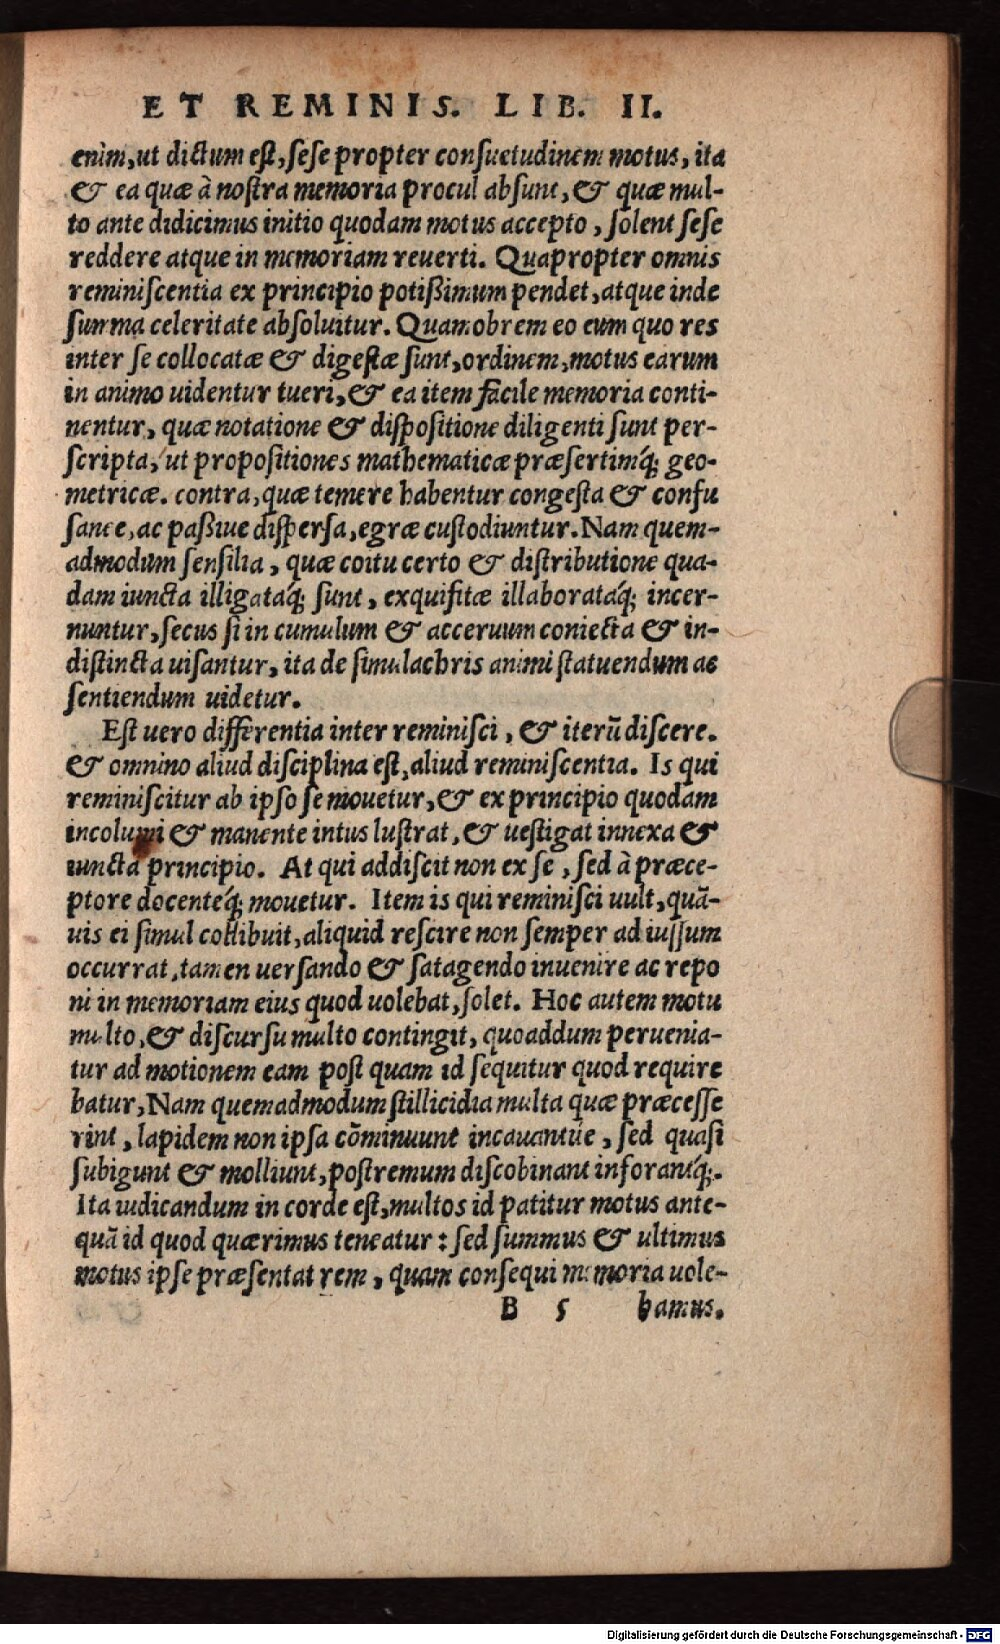 ET REMINIS. LIB. II.
enim, ut dictum est, sese propter consuetudinem motus, ita
& ea quæ à nostra memoria procul absunt, & quæ mul-
to ante didicimus initio quodam motus accepto, solent sese
reddere atque in memoriam reuerti. Quapropter omnis
reminiscentia ex principio potißimum pendet, atque inde
summa celeritate absoluitur. Quamobrem eo cum quo res
inter se collocatæ & digestæ sunt, ordinem, motus earum
in animo uidentur tueri, & ea item facile memoria conti-
nentur, quæ notatione & dispositione diligenti sunt per-
scripta, ut propositiones mathematicæ præsertimq́; geo-
metricæ. contra, quæ temere habentur congesta & confu
sane, ac paßiue dispersa, egræ custodiuntur. Nam quem-
admodum sensilia, quæ coitu certo & distributione qua-
dam iuncta illigatáq; sunt, exquisitæ illaboratáq; incer-
nuntur, secus si in cumulum & acceruum coniecta & in-
distincta uisantur, ita de simulachris animi statuendum ac
sentiendum uidetur.
Est uero differentia inter reminisci, & iterū discere.
& omnino aliud disciplina est, aliud reminiscentia. Is qui
reminiscitur ab ipso se mouetur, & ex principio quodam
incolumi & manente intus lustrat, & uestigat innexa &
iuncta principio. At qui addiscit non ex se, sed à præce-
ptore docenteq́; mouetur. Item is qui reminisci uult, quā-
uis ei simul collibuit, aliquid rescire non semper ad iussum
occurrat, tamen uersando & satagendo inuenire ac repo
ni in memoriam eius quod uolebat, solet. Hoc autem motu
multo, & discursu multo contingit, quoaddum peruenia-
tur ad motionem eam post quam id sequitur quod require
batur, Nam quemadmodum stillicidia multa quæ præcesse
rint, lapidem non ipsa cōminuunt incauantúe, sed quasi
subigunt & molliunt, postremum discobinant inforantq́;.
Ita iudicandum in corde est, multos id patitur motus ante-
quā id quod quærimus teneatur: sed summus & ultimus
motus ipse præsentat rem, quam consequi memoria uole-
B 5 bamus.
Digitalisierung gefördert durch die Deutsche Forschungsgemeinschaft - DFG